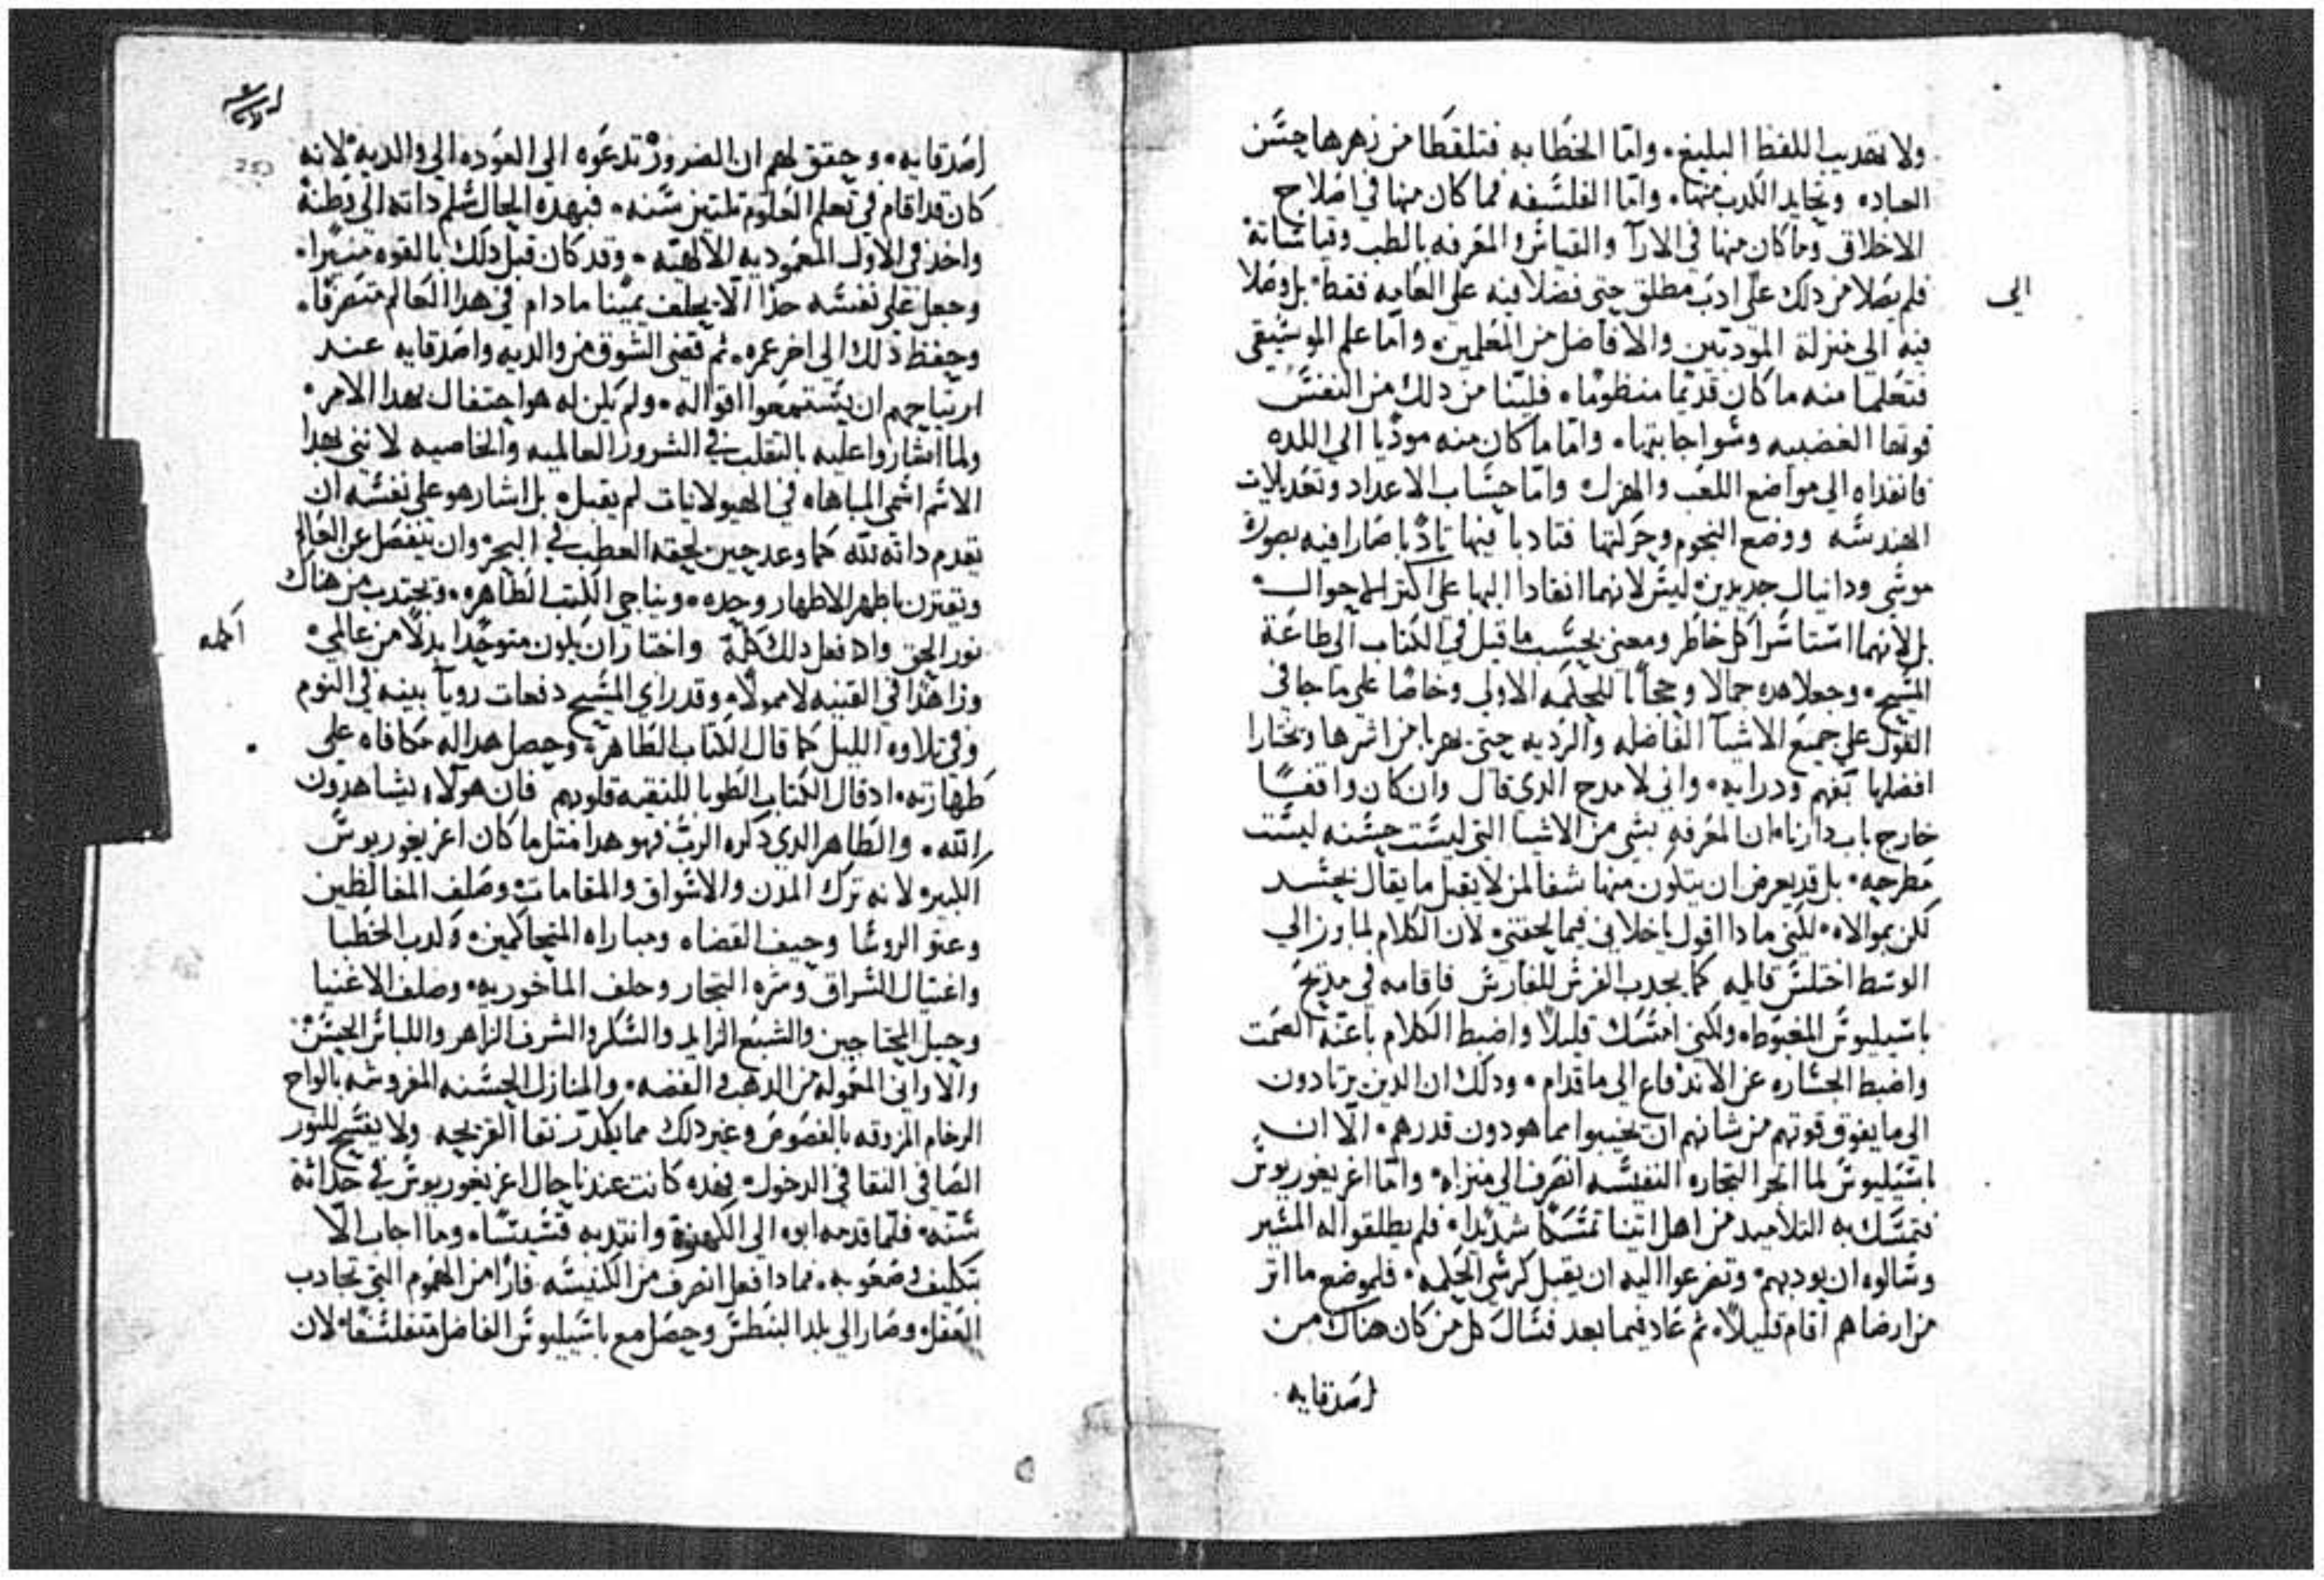 ولا تهديب اللفظ البليغ. واما الخطابه فتلقطا من زهرها حسن
العباده وتحايد الكدب منها. واما الفلسفه فما كان منها في اصلاح
الاخلاق وما كان منها في الارآ والقياس والمعرفه بالطب وقياساتة
فلم يصلا من دلك على ادب مطلق حتى فضلا فيه على العامه فقط. بل وصلا
الى
فيه الى منزلة المودبين والافاضل من المعلمين. واما علم الموسيقى
فتعلما منه ما كان قديما منظوما. فلينا من دلك من النفس
قوتها الغضبيه وسوا جانبتها. واما ما كان منه موديا الى اللده
فانفداه الى مواضع اللعب والهزل واما حساب الاعداد وتعديلات
الهندسه ووضع النجوم وحركتها فتادبا فيها تادبا صارا فيه بصورة
موسى ودانيال جديدين. ليس لانهما انقادا اليها على اكتر الاحوال.
بل لانهما استاسرا كل خاطر ومعنى بحسب ما قيل في الكتاب الى طاعة
المسيح. وجعلا هده جمالا وحجابا للحكمه الاولى وخاصا على ما جا في
القول على جميع الاشيآ الفاضله والرديه حتى يهربا من اشرها ويختارا
افضلها بفهم ودرايه. واني لامدح الدي قال وان كان واقفًا
خارج باب دارنا. ان المعرفه بشي من الاشيا التي ليست حسنه ليست
مطرحه. بل قد يعرض ان يتكون منها شفا لمن لا يقبل ما يقال بحسد
لكن بموالاه. لكني مادا اقول ياخلاني فيما لحقني. لان الكلام لما ورد الى
الوسط اختلس قايله كما يجدب الفرس للفارس فاقامه في مديح
باسيليوس المغبوط. ولكني امتسك قليلاً واضبط الكلام باعنة الصمت
واضبط الجساره عن الاندفاع الى ما قدام. ودلك ان الدين يرتادون
الى ما يفوق قوتهم من شانهم ان يخيبوا مما هو دون قدرهم. الّا ان
باسيليوس لما اتجر التجاره النفيسه انصرف الى منزله. واما اغريغوريوس
فتمسك به التلاميد من اهل اتينا تمسكا شديدا. فلم يطلقوا له المسير
وسالوه ان يودبهم. وتضرعوا اليه ان يقبل كرسي الحكمه. فلموضع ما اتر
من ارضاهم اقام قليلاً. ثم عاد فيما بعد فسال كل من كان هناك من
اصدقايه
اصدقايه. وحقق لهم ان الضروره تدعوه الى العوده الى والديه لانه
كان قد اقام في تعلم العلوم تلتين سنه. فبهده الحال سلم داته الى وطنة
واخد في الاول المعموديه الالاهيه. وقد كان قبل دلك بالقوه منيرا.
وجعل على نفسه حدا الّا يحلف يمينا ما دام في هدا العالم متصرفا.
وحفظ ذلك الى اخر عمره. ثم قضى الشوق من والديه واصدقايه عند
ارتياحهم ان يستمعوا اقواله. ولم يكن له هو احتفال بهدا الامر.
ولما اشاروا عليه بالتقلب في الشرور العالميه والخاصيه لانني بهدا
الاسم اسمي المباهاه في الهيولانيات لم يقبل. بل اشار هو على نفسه ان
يقدم داته لله كما وعد حين لحقه العطب في البحر وان ينفصل عن العالم
ويقترن باطهر الاطهار وحده. ويناجي الكتب الطاهره. ويجتدب من هناك
نور الحق واد فعل دلك كلة واختار ان يكون متوحدا بدلًا من عالمي.
اكله
وزاهدًا في القنيه لا ممولًا. وقد راى المسيح دفعات رويآ بينه في النوم
وفي تلاوه الليل كما قال الكتاب الطاهر. وحصل هدا له مكافاه على
طهارته. اد قال الكتاب الطوبا للنقيه قلوبهم فان هولاء يشاهدون
الله. والطاهر الدي دكره الرب فهو هدا متل ما كان اغريغوريوس
الكبير. لانه ترك المدن والاسواق والمقامات وصلف المغالطين
وعتو الروسا وحيف القضاه ومباراه المتحاكمين. وكدب الخطبا
واغتيال السراق وشره التجار وحلف الماخوريه. وصلف الاغنيا
وحيل المحتاجين والشبع الزايد والسكر والشرف الزاهر واللباس الحسن
والاواني المعموله من الدهب والفضه. والمنازل الحسنه المفروشه بالواح
الرخام المزوقه بالفصوص وغير دلك مما يكدر نقا القريحه ولا يفسح للنور
الصافي النقا في الدخول. فهده كانت عندنا حال اغريغوريوس في حداتة
سنه. فلما قدمه ابوه الى الكهنوة وانتدبه قسيسًا. وما اجاب الّا
بتكليف وصعوبه. فمادا فعل انصرف من الكنيسه فارًا من الهموم التي تجادب
العقل. وصار الى بلد البنطس وحصل مع باسيليوس الفاضل متفلسفا. لان
253